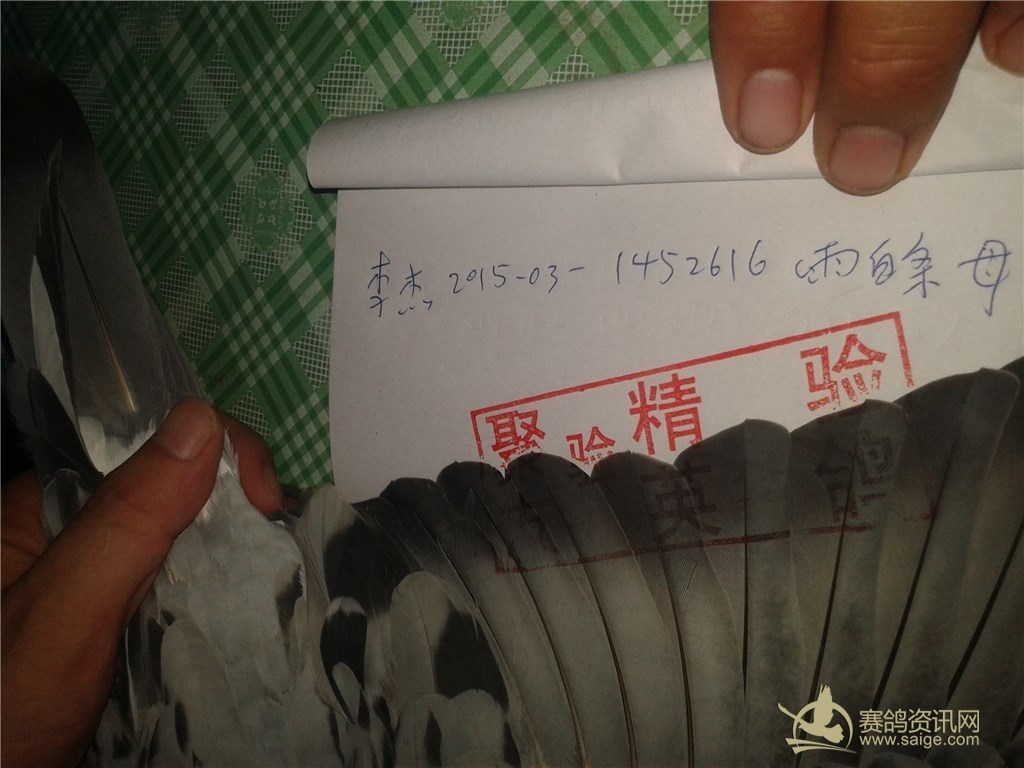 李杰 2015-03-1452616 雨白条 母
聚 精 验
验
英 鸽
赛鸽资讯网
www.saige.com